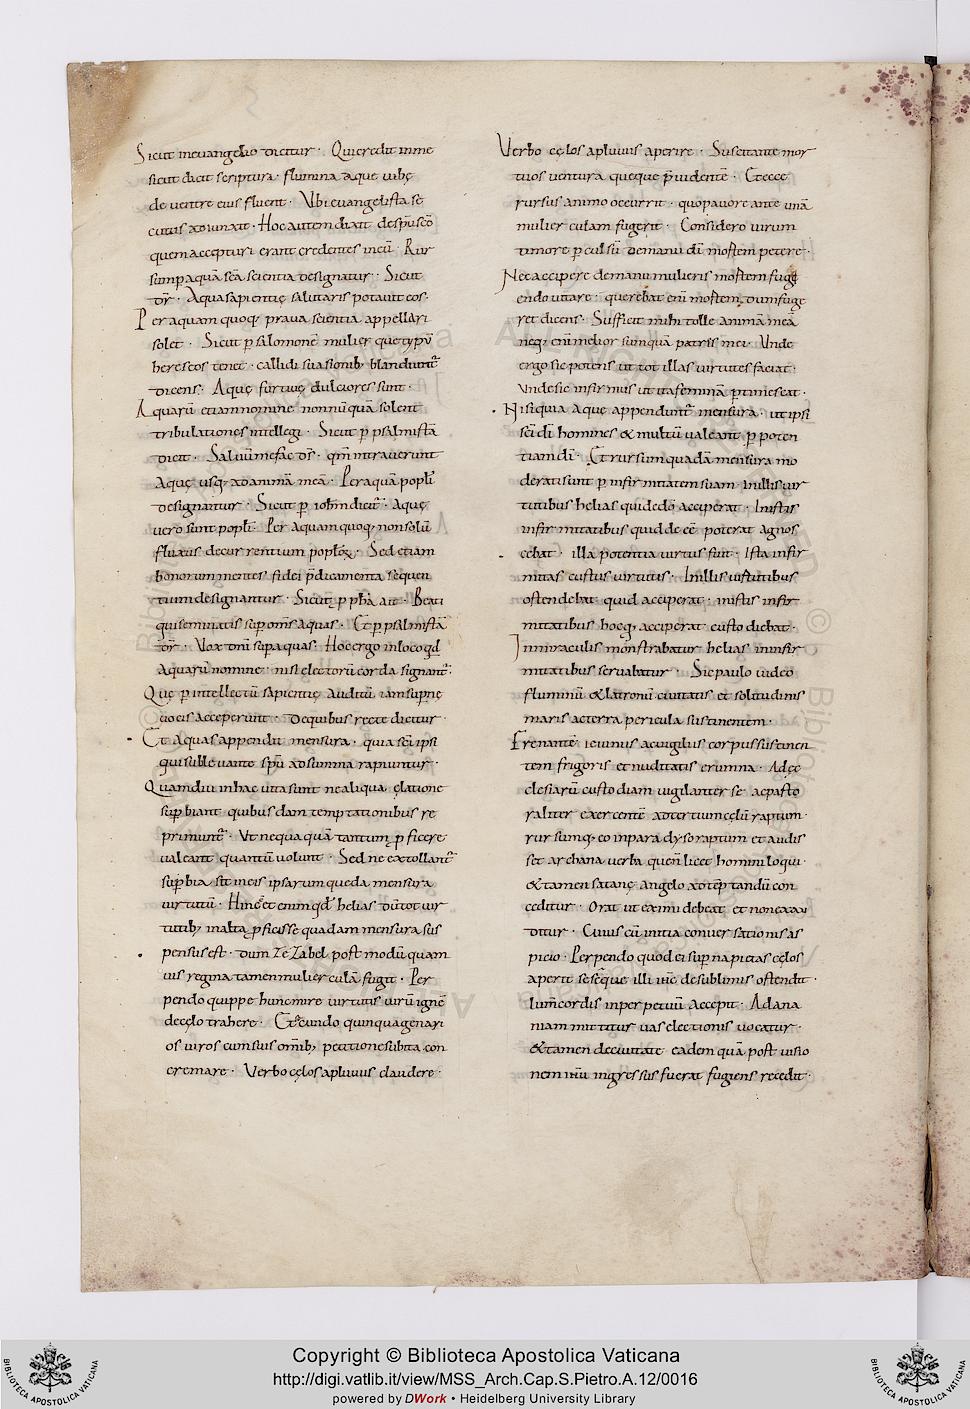 Sicut in euangelio dicitur · Qui credit in me
sicut dicit scriptura · flumina aquę uiuę
de uentre eius fluent · Ubi euangelista se
cutus adiunxit · Hoc autem dixit de spū scō
quem accepturi erant credentes in eū · Rur
sum p aquā sc̄a scientia designatur · Sicut
dr̄ · Aqua sapientię salutaris potauit eos ·
Per aquam quoq; praua scientia appellari
solet · Sicut p salomonē mulier que typū
hereseos tenet · callidi suasionib; blanditur
dicens · Aquę furtiuę dulciores sunt ·
Aquarū etiam nomine nonnūquā solent
tribulationes intellegi · Sicut p psalmistā
dicit · Saluū me fac dn̄e · qm̄ intrauerunt
Aquę usq; ad animā meā · Per aquā popłi
designantur · Sicut p iohem dicit · Aquę
uero sunt popłi · Per aquam quoq; non solū
fluxus decurrentium poploꝝ · Sed etiam
bonorum mentes fidei p̄dicamenta sequen
tium designantur · Sicut p ppħā ait · Beati
qui seminatis sup om̄s aquas · Et p psalmistā
dr̄ · Uox dn̄i sup aquas · Hoc ergo in loco qd
Aquarū nomine nisi electorū corda signant ·
Quę p intellectū sapientię auditū iam supnę
uocis acceperunt · De quibus recte dicitur ·
Et aquas appendit mensura · quia sc̄i ipsi
qui subleuante spū ad summa rapiuntur ·
Quamdiu in hac uita sunt ne aliqua ęlatione
supbiant quibusdam temptationibus re
primunt · Ut nequaquā tantum pficere
ualeant quantū uolunt · Sed ne extollant
supbia fit in eis ipsarum quedam mensura
uirtutū · Hinc est enim qd helias dū tot uir
tutib; in alta pfecisse quadam mensura sus
pensus est · dum Iezabel post modū quam
uis regina tamen mulierculā fugit · Per
pendo quippe hunc mire uirtutis uirū ignē
de cęlo trahere · Et secundo quinquagenari
os uiros cum suis om̄ib; petitione subita con
cremare · Uerbo cęlos a pluuiis claudere ·
Uerbo cęlos a pluuiis aperire · Suscitante mor
tuos uentura queque p̄uidentē · Et ecce
rursus animo occurrit · quo pauore ante unā
mulierculam fugerit · Considero uirum
timore pculsū de manu dī mortem petere ·
Nec accipere de manu mulieris mortem fugi
endo uitare · querebat enī mortem dum fuge
ret dicens · Sufficit mihi tolle animā meā
neq; enī melior sum quā patres mei · Unde
ergo sic potens ut tot illas uirtutes faciat ·
Unde sic infirmus ut ita feminā ptimescat ·
Nisi quia aquę appendunt mensura · ut ipsi
sc̄i dī homines & multū ualeant p poten
tiam dī · Et rursum quadā mensura mo
derati sunt p infirmitatem suam · In illis uir
tutibus helias quid de dō acceperat · In istis
infirmitatibus quid de se poterat agnos
cebat · illa potentia uirtus fuit · Ista infir
mitas custus uirtutis · In illis uirtutibus
ostendebat quid acceperat · in istis infir
mitatibus hoc q; acceperat custodiebat ·
In miraculis monstrabatur helias in infir
mitatibus seruabatur · Sic paulū uideo
fluminū & latronū ciuitatis et solitudinis
maris ac terra pericula sustinentem ·
Frenantē ieiuniis ac uigiliis corpus sustinen
tem frigoris et nuditatis erumna · Ad ęc
clesiarū custodiam uigilanter se ac pasto
raliter exercentē ad tertium cęlū raptum ·
rursumq; eo in paradyso raptum et audis
set archana uerba quę nō licet homini loqui ·
& tamen satanę angelo ad temptandū con
ceditur · Orat ut eximi debeat et non exau
ditur · Cuius cū initia conuersationis as
picio · Perpendo quod ei supna pietas cęlos
aperit sesēque illi ihc̄ de sublimis ostendit ·
Lum̄ cordis in perpetuū accepit · Ad ana
niam mittitur uas electionis uocatur ·
& tamen de ciuitate eadem quā post uisio
nem ihū ingressus fuerat fugiens recedit ·
Copyright © Biblioteca Apostolica Vaticana
http://digi.vatlib.it/view/MSS_Arch.Cap.S.Pietro.A.12/0016
powered by DWork • Heidelberg University Library